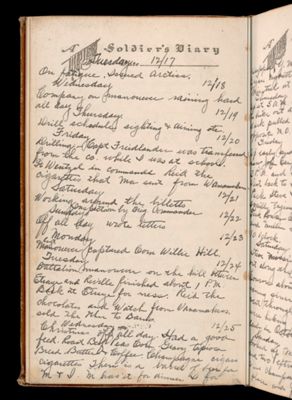 A Soldier's Diary
Tuesday 12/17
On fatigue. Issued Arctics.
Wednesday 12/18
Company on manoeuver raining hard
all day Thursday 12/19
Drill schedule, sighting & aiming etc
Friday 12/20
Drilling. Capt Freidlander was transferred
from the Co. while I was at school.
Lt Wentzel in command. Rec'd the
cigarettes that Ma sent from Wanamakers
Saturday 12/21
Working around the billets
Inspection by Brig Commander
Sunday 12/22
Off all day wrote letters
Monday 12/23
Manoeuver captured Corn Willie Hill
Tuesday 12/24
Battalion manoeuver on the hill between
and finished about 1 PM
Back at for mess. Rec'd the
chocolates and Watch from Wanamakers.
sold the to
Wednesday 12/25
Christmas off all day. Had a good
feed. Roast Peas Corn, tapioca
Bread Butter & Coffee. Champagne cigars
cigarettes There is a barrel of for
M & I. for dinner &